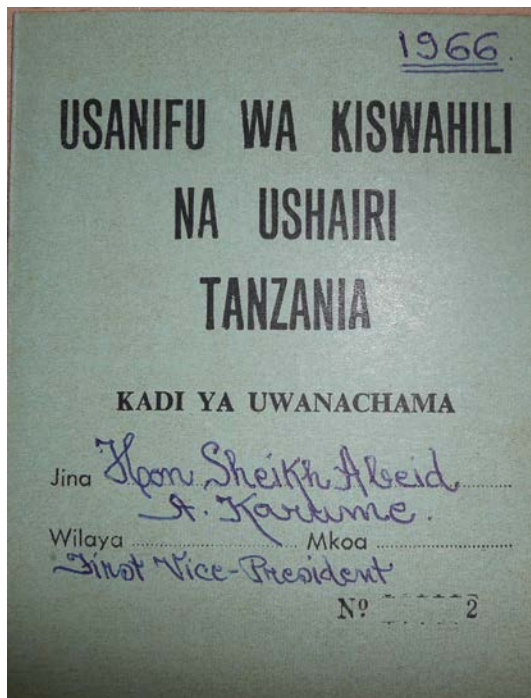 1966.
USANIFU WA KISWAHILI
NA USHAIRI
TANZANIA
KADI YA UWANACHAMA
Jina Hon Sheikh Abeid
A. Karume.
Wilaya Mkoa
First Vice-President
Nº 2